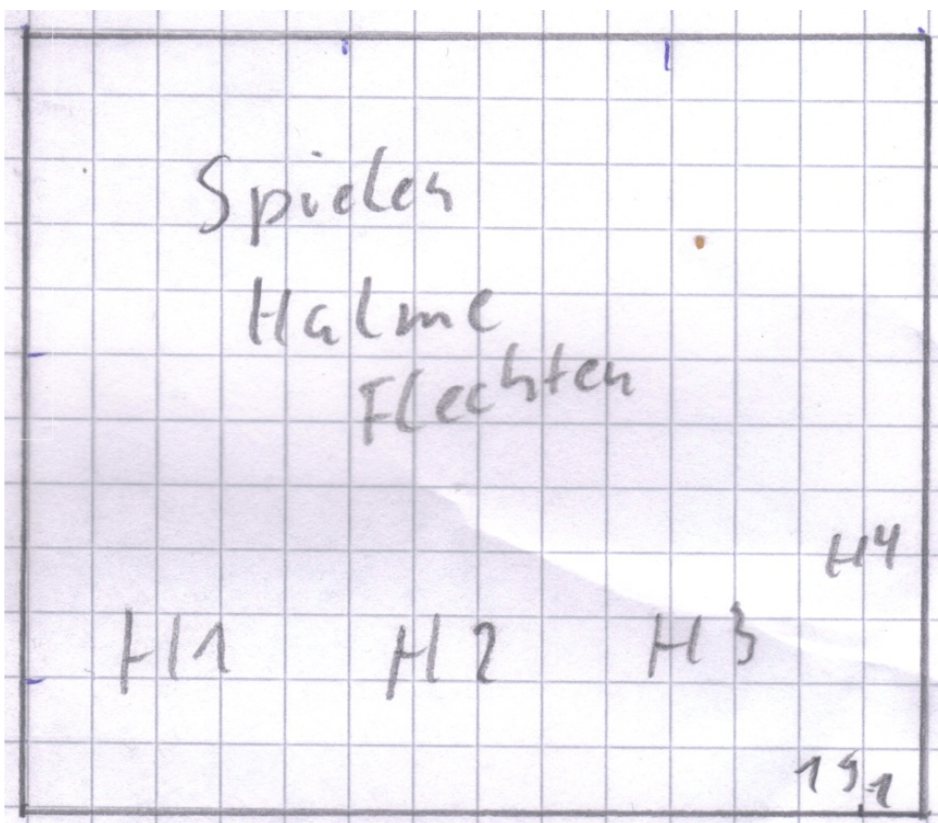 Spielen
Halme
Flechten
H4
H1 H2 H3